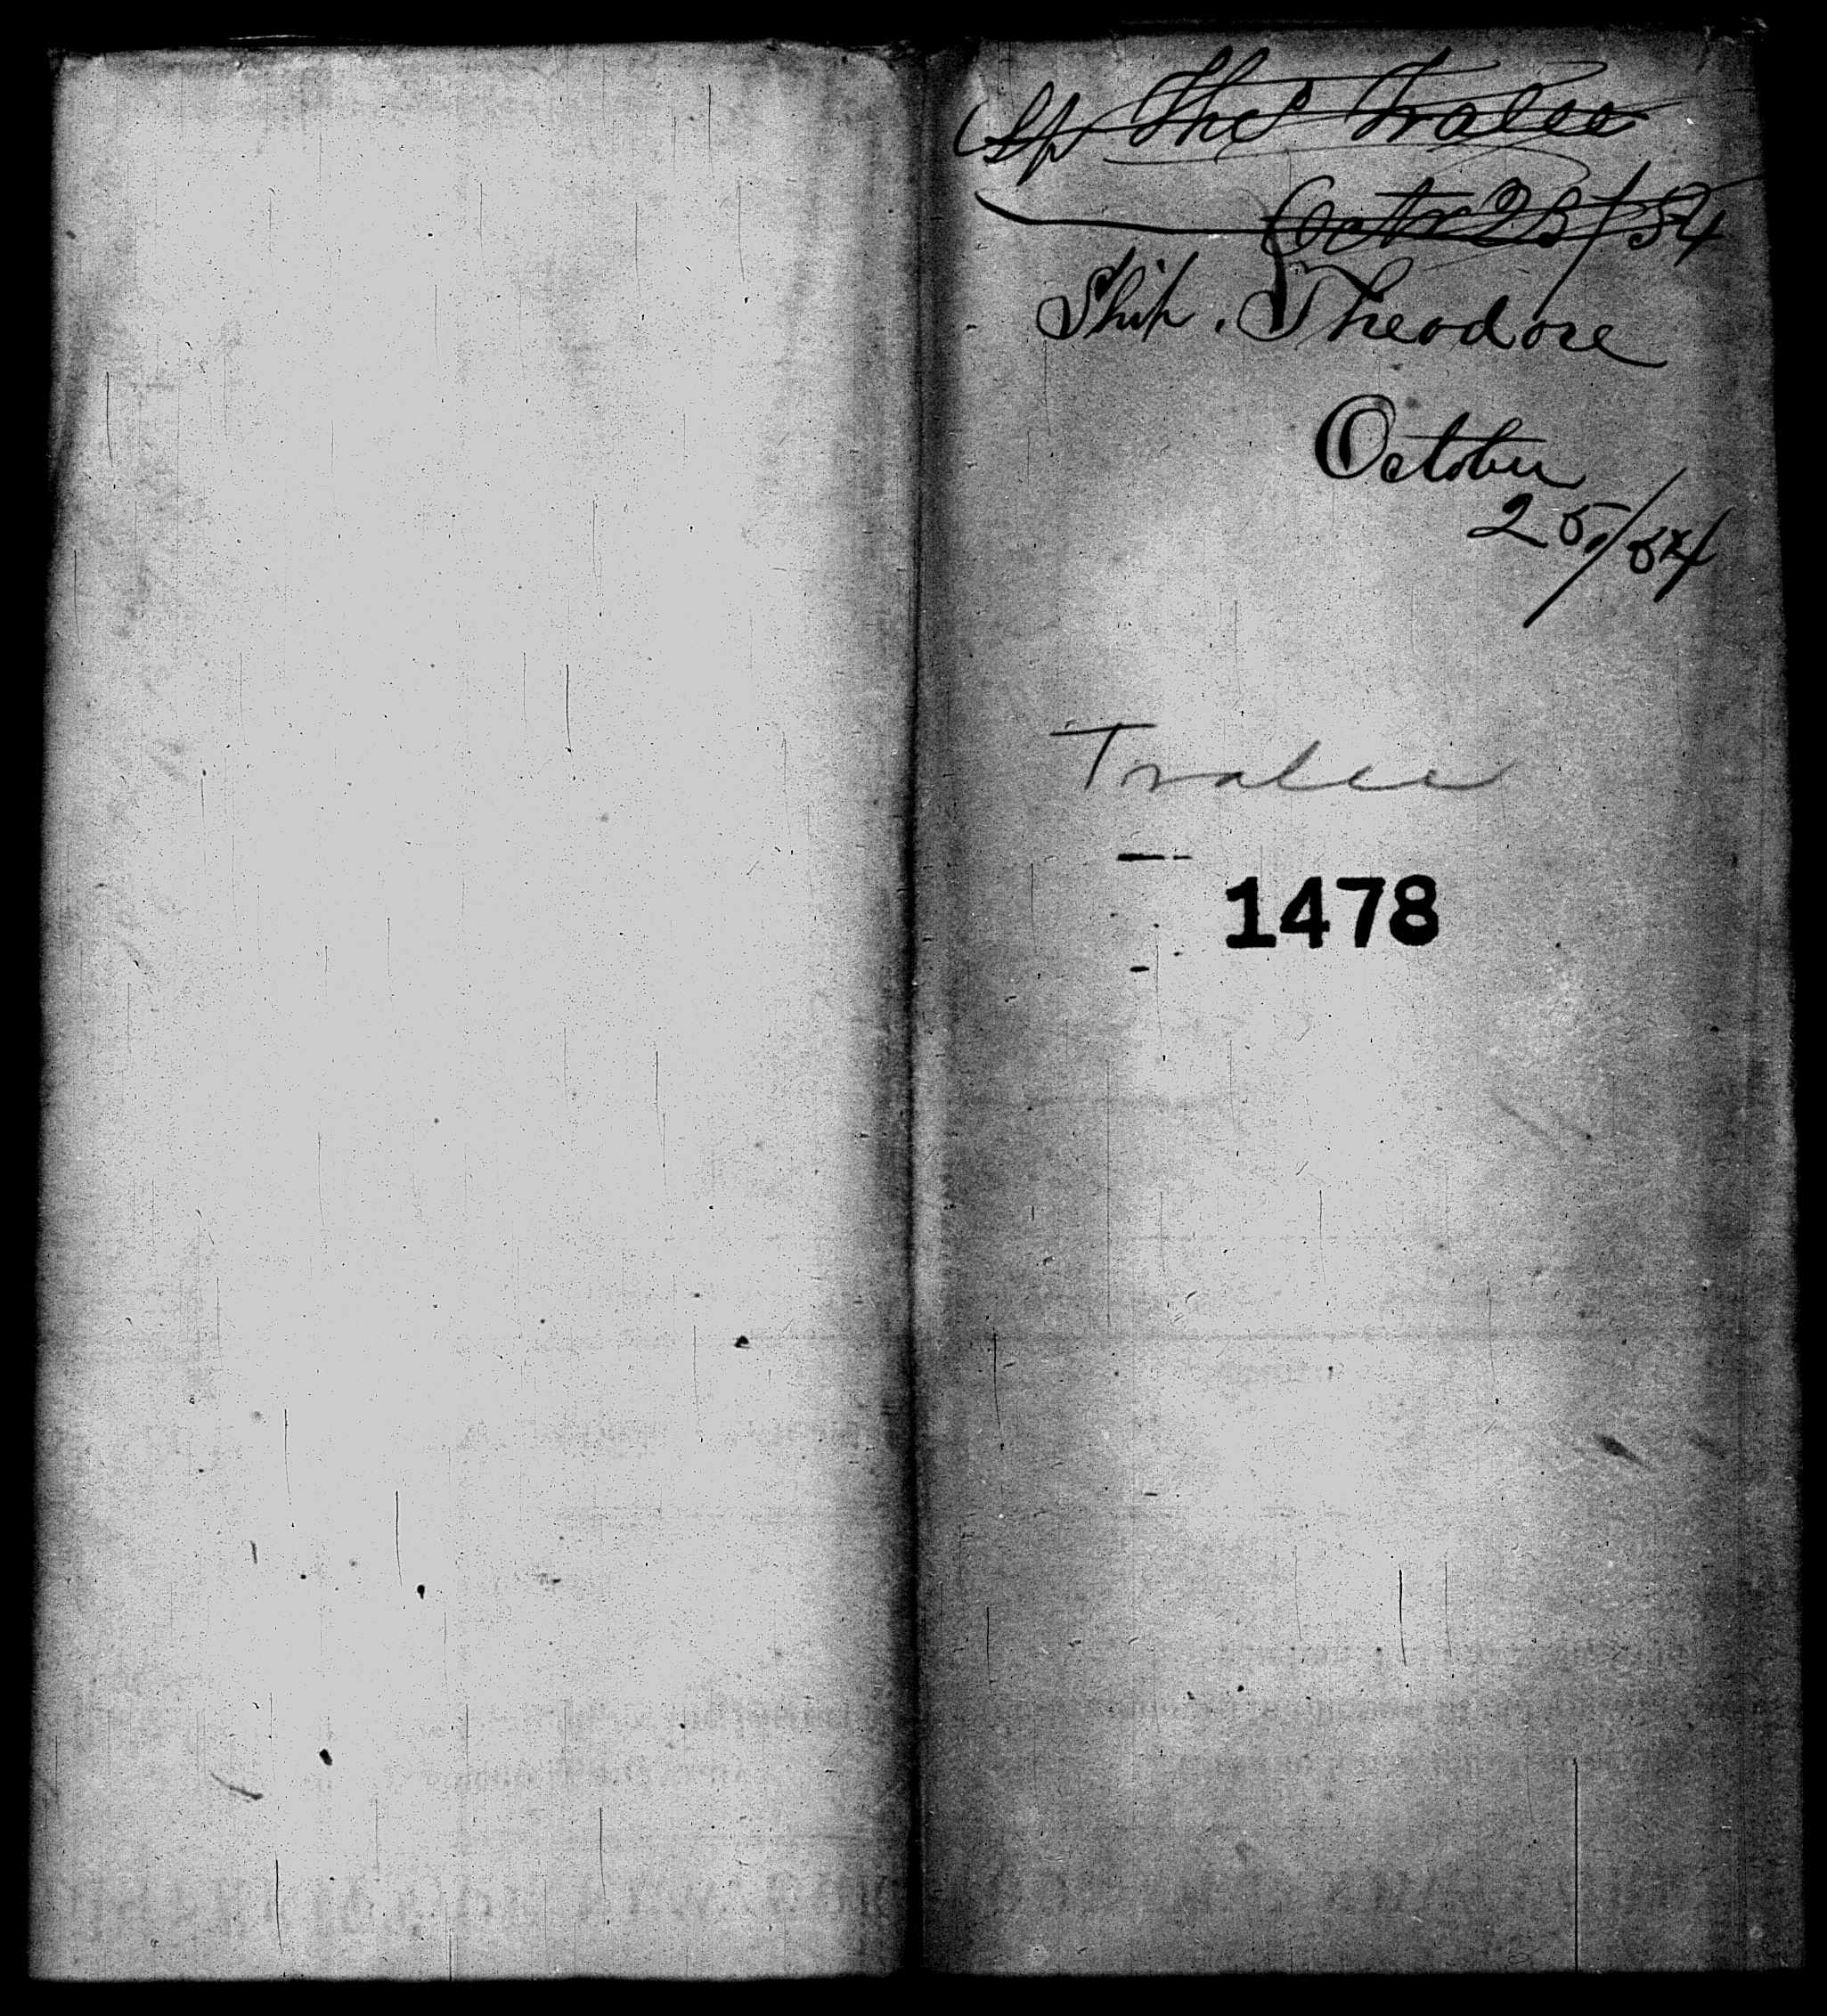 Sp Theo Tralee
Octr 25/54
Ship. Theodore
October
25/54
Tralee
1478